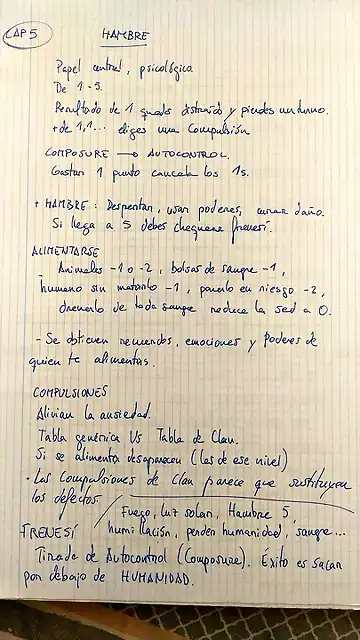 CAP 5
HAMBRE
Papel central, psicológico.
De 1 - 5.
Resultado de 1 quedas distraido y pierdes un turno.
+ de 1, 1... eliges una Compulsión
COMPOSURE → AUTOCONTROL.
Gastar 1 punto cancela los 1s.
+ HAMBRE: Despertar, usar poderes, curar daño.
Si llega a 5 debes chequear frenesí.
ALIMENTARSE
- Animales -1 o -2, bolsas de sangre -1,
humano sin matarlo -1, ponerlo en riesgo -2,
drenarlo de toda sangre reduce la sed a 0.
- Se obtienen recuerdos, emociones y Poderes de
quien te alimentas.
COMPULSIONES
Alivian la ansiedad.
Tabla genérica Vs Tabla de Clan.
Si se alimenta desaparecen (las de ese nivel)
- Las Compulsiones de Clan parece que sustituyen
los defectos.
Fuego, luz solar, Hambre 5,
FRENESÍ
humillación, perder humanidad, sangre...
Tirada de Autocontrol (Composure). Éxito es sacar
por debajo de HUMANIDAD.